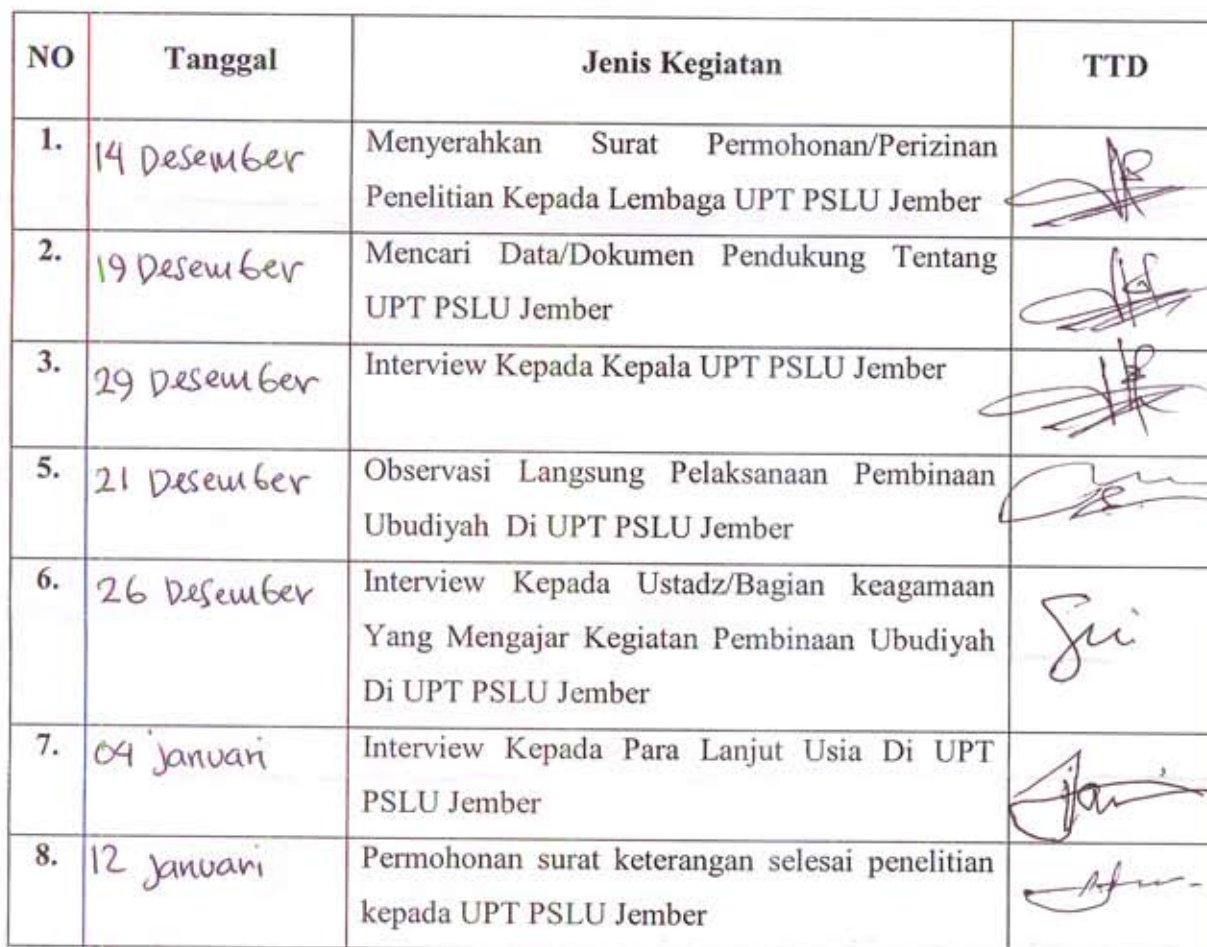 NO Tanggal Jenis Kegiatan TTD
1. 14 Desember Menyerahkan Surat Permohonan/Perizinan
Penelitian Kepada Lembaga UPT PSLU Jember
2. 19 Desember Mencari Data/Dokumen Pendukung Tentang
UPT PSLU Jember
3. 29 Desember Interview Kepada Kepala UPT PSLU Jember
5. 21 Desember Observasi Langsung Pelaksanaan Pembinaan
Ubudiyah Di UPT PSLU Jember
6. 26 Desember Interview Kepada Ustadz/Bagian keagamaan
Yang Mengajar Kegiatan Pembinaan Ubudiyah
Di UPT PSLU Jember
7. 04 Januari Interview Kepada Para Lanjut Usia Di UPT
PSLU Jember
8. 12 Januari Permohonan surat keterangan selesai penelitian
kepada UPT PSLU Jember